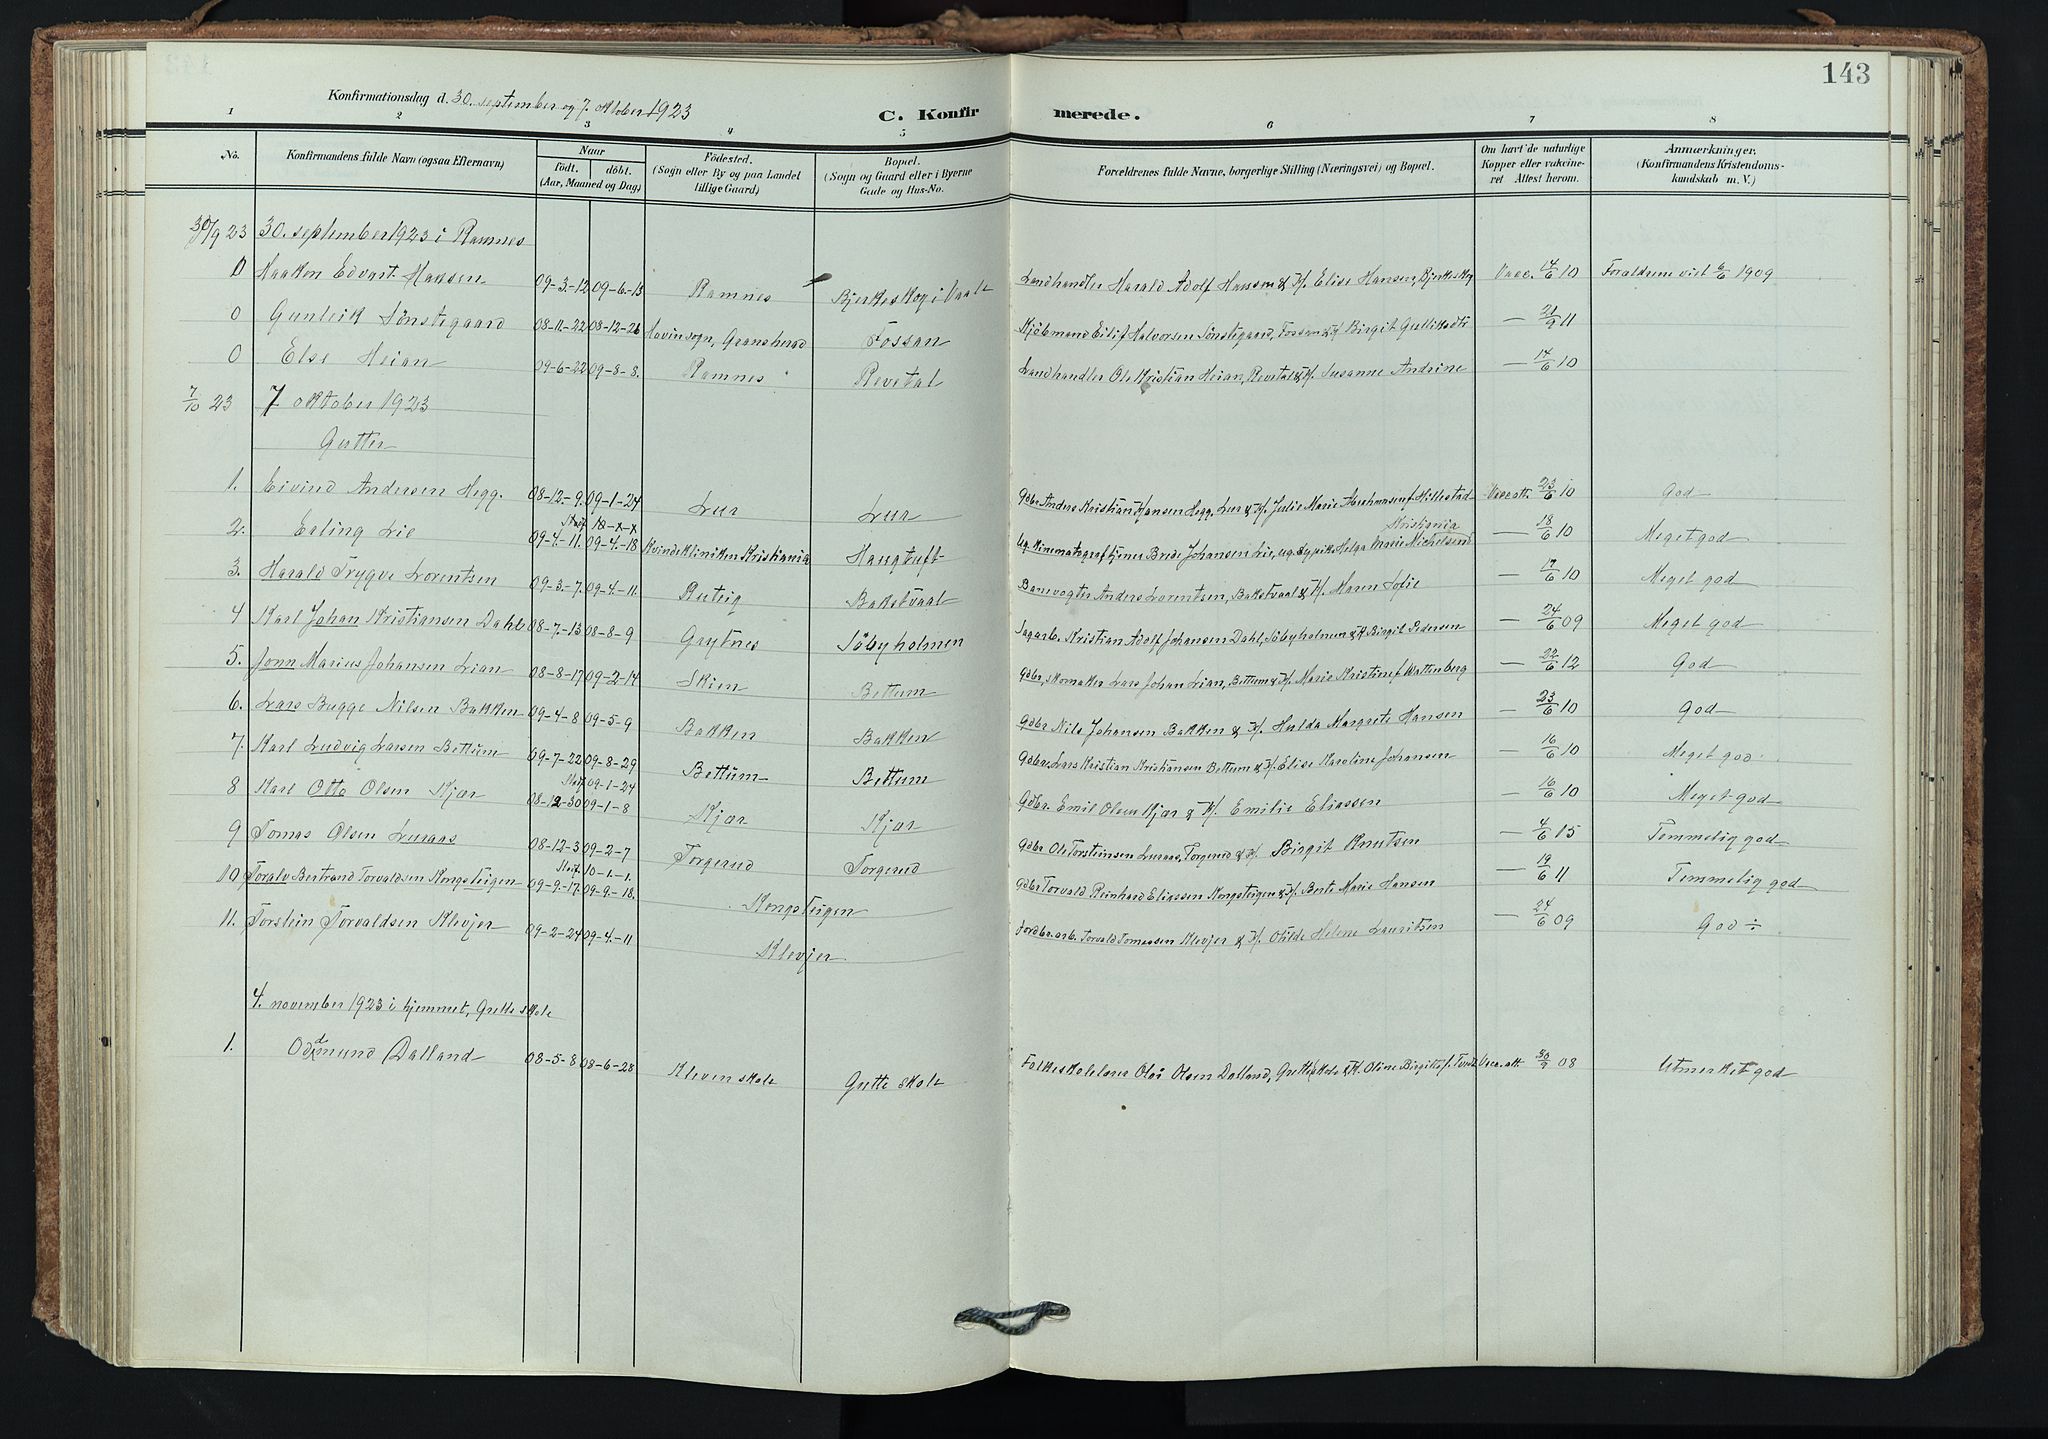 143
Konfirmationsdag d. 30. september og 7. oktober 1923
C. Konfirmerede.
1 2 3 4 5 6 7 8
No. Konfirmandens fulde Navn (ogsaa Efternavn) Naar födt. döbt. (Aar, Maaned og Dag) Födested. (Sogn eller By og paa Landet tillige Gaard) Bopæl. (Sogn og Gaard eller i Byerne Gade og Hus-No. Forældrenes fulde Navne, borgerlige Stilling (Næringsvei) og Bopæl. Om havt de naturlige Kopper eller vakcineret Attest herom. Anmærkninger. (Konfirmandens Kristendomskundskab m. V.)
30/9 23 30. september 1923 i Ramnes
0 Haakon Edvart Hansen 09-3-12 09-6-13 Ramnes Bjerkeskog i Vaale Landhandler Harald Adolf Hansen & H. Elise Hansen, Bjerkeskog Vacc. 14/6 10 Foraldrene viet 6/6 1909
0 Gunleik Sönstegaard 08-11-22 08-12-26 Hovin sogn, Gransherad Fossan Kjöbmand Eilif Halvorsen Sönstegaard, Fossan & H. Birgit Gulliksdtr — 21/9 11
0 Else Heian 09-6-22 09-8-8. Ramnes Revetal Landhandler Ole Kristian Heian, Revetal & H. Susanne Andrine — 14/6 10
7/10 23 7 oktober 1923
Gutter
1. Eivind Andersen Hegg. 08-12-9. 09-1-24 Lur Lur Gdbr. Anders Kristian Hansen Hegg, Lur & H. Julie Marie Abrahamsen f Hillestad Vacc att. 23/6 10 God
2. Erling Lie 09-4-11. 09-4-18 Kvindekliniken Kristiania Haugtuft ug. Kinematograftjener Brede Johansen Lie, ug. Helga Marie Michelsen Kristiania — 18/6 10 Meget god
3. Harald Trygve Lorentsen 09-3-7. 09-4-11. Ruteig Bakstvaal Banevogter Anders Lorentsen, Bakstvaal & H. Maren Sofie — 17/6 10 Meget god
4 Karl Johan Kristiansen Dahl 08-7-13 08-8-9 Grytnes Söbyholmen Sagarb. Kristian Adolf Johansen Dahl, Söbyholmen & H. Birgit Pedersen — 24/6 09 Meget god
5. Jonn Marius Johansen Lian 08-8-17 09-2-14 Skien Bettum Gdbr, skomaker Lars Johan Lian, Bettum & H. Marie Kristine f Wattenberg — 22/6 12 God
6. Lars Bugge Nilsen Bakken 09-4-8 09-5-9 Bakken Bakken Gdbr. Nils Johansen Bakken & H. Hulda Margrete Hansen — 23/6 10 God
7. Karl Ludvig Larsen Bettum 09-7-22 09-8-29 Bettum Bettum Gdbr. Lars Kristian Kristiansen Bettum & H. Elise Karoline Johansen — 16/6 10 Meget god
8 Karl Otto Olsen Kjær 08-12-30 09-1-8 Stadf. 09-1-24 Kjær Kjær Gdbr. Emil Olsen Kjær & H. Emilie Eliassen — 16/6 10 Meget god
9 Tomas Olsen Luraas 08-12-3 09-2-7 Torgerud Torgerud Gdbr Ole Torsteinsen Luraas, Torgerud & H. Birgit Knutsen — 4/6 15 Temmelig god
10 Toralv Bertrand Torvaldsen Kongsteigen 09-9-17. 09-9-18. Stadf. 10-1-1. Kongsteigen Gdbr Torvald Reinhard Eliassen Kongsteigen & H. Berte Marie Hansen — 19/6 11 Temmelig god
11. Torstein Torvaldsen Klevjer 09-2-24 09-4-11 Klevjer Jordbr. arb. Torvald Tomassen Klevjer & H. Otilde Helene Lauritsen — 24/6 09 God ÷
4. november 1923 i hjemmet, Grette skole
1. Oddmund Dalland 08-5-8 08-6-28 Kleven skole Grette skole Folkeskolelærer Olai Olsen Dalland, Grette skole & H. Oline Birgitte f. Tvedt Vacc. att. 30/9 08 Utmerket god